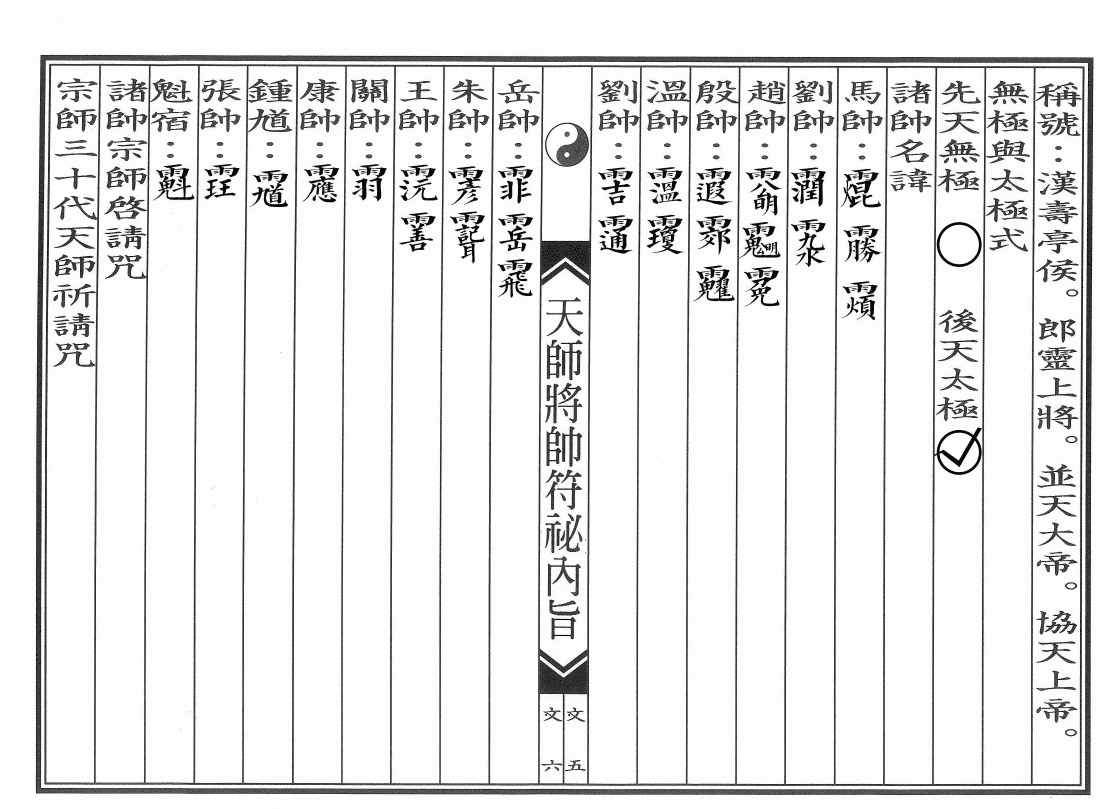 稱號：漢壽亭侯。郎靈上將。並天大帝。協天上帝。
無極與太極式
先天無極 後天太極
諸帥名諱
馬帥：
劉帥：
趙帥：
殷帥：
溫帥：
劉帥：
天師將帥符祕內旨
文五
文六
岳帥：霏
朱帥：
王帥：
關帥：
康帥：
鍾馗：
張帥：
魁宿：
諸帥宗師啓請咒
宗師三十代天師祈請咒